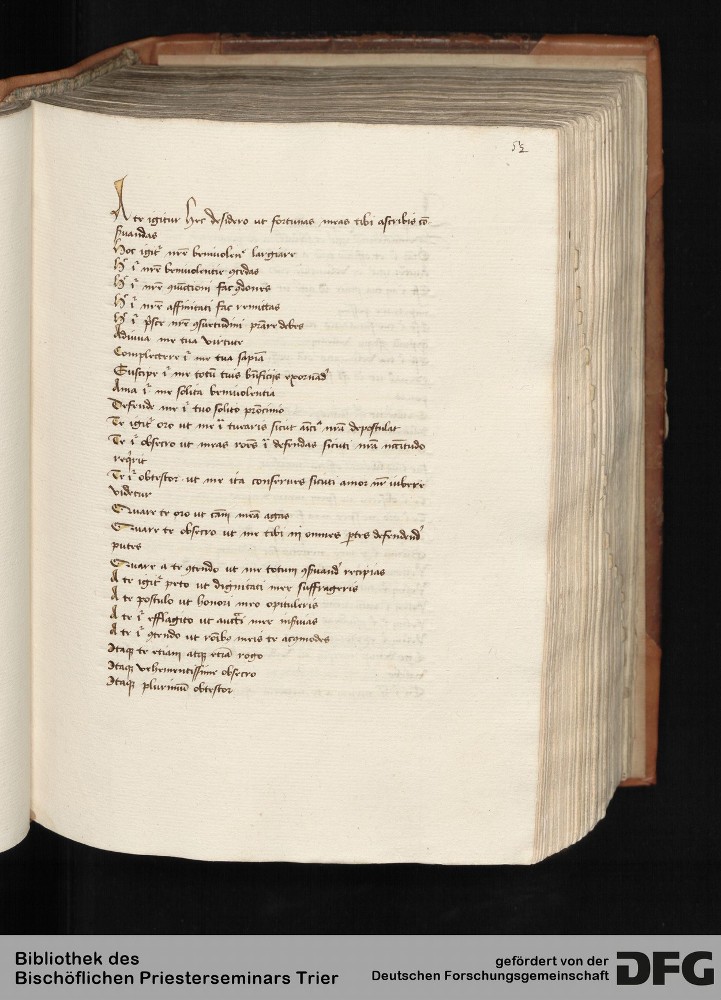 52
A te igitur hec desidero ut fortunas meas tibi ascribis cō
ẜuandas
Hoc igit᷑ nr̄e beniuolen᷑ largiare
H᷑ i᷑ nr̄e beniuolentie ꝯcedas
H᷑ i᷑ nr̄e fac ꝯdones
H᷑ i᷑ nr̄e affinitati fac remittas
H᷑ i᷑ nr̄e ꝯsuetudini debes
Adiuua me tua virtute
Complectere i᷑ me tua sapīa
Suscipe i᷑ me totū tuis bn̄ficijs exornād᷑
Ama i᷑ me solita beniuolentia
Defende me i᷑ tuo solito
Te igit᷑ oro ut me i᷑ tuearis sicut nr̄a depostulat
Te i᷑ obsecro ut meas i᷑ defendas sicuti nr̄a
reqrit
Te i᷑ obtestor ut me ita conserues sicuti amor nr̄ iubere
videtur
Quare te oro ut cām meā agas
Quare te obsecro ut me tibi in omnes ꝑtes defendend᷑
putes
Quare a te ꝯtendo ut me totum ꝯẜuand᷑ recipias
A te igit᷑ peto ut dignitati mee suffrageris
A te postulo ut honori meo opituleris
A te i᷑ efflagito ut mee
A te i᷑ ꝯtendo ut meis te acꝯmodes
Itaqꝫ te etiam atqꝫ etiā rogo
Itaqꝫ vehementissime obsecro
Itaqꝫ plurimū obtestor
Bibliothek des
Bischöflichen Priesterseminars Trier
gefördert von der
Deutschen Forschungsgemeinschaft
DFG